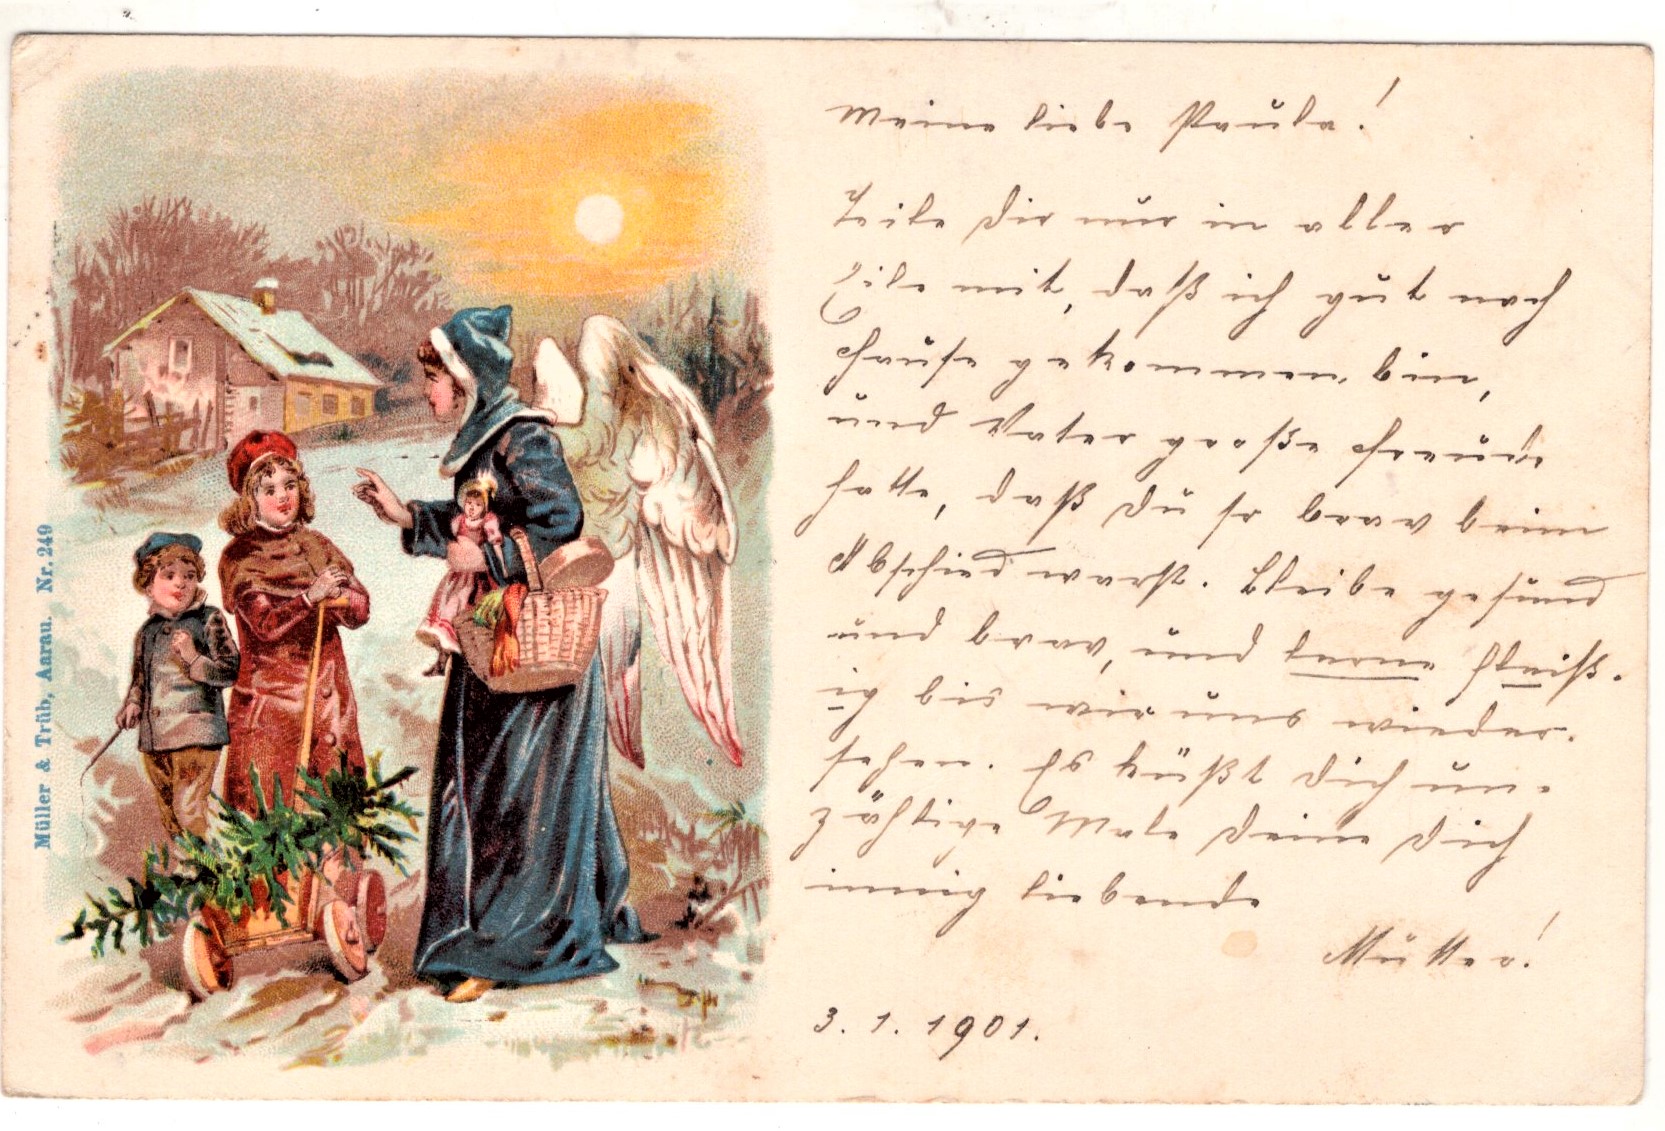 Müller & Trüb, Aarau. Nr. 249
Meine liebe Paula!
Teile Dir nur in aller
Eile mit, daß ich gut nach
Hause gekommen bin,
und Vater große Freude
hatte, daß Du so brav beim
Abschied warst. Bleibe gesund
und brav, und lerne fleiß-
ig bis wir uns wieder-
sehen. Es küßt Dich un-
zählige Male Deine Dich
innig liebende
Mutter!
3. 1. 1901.